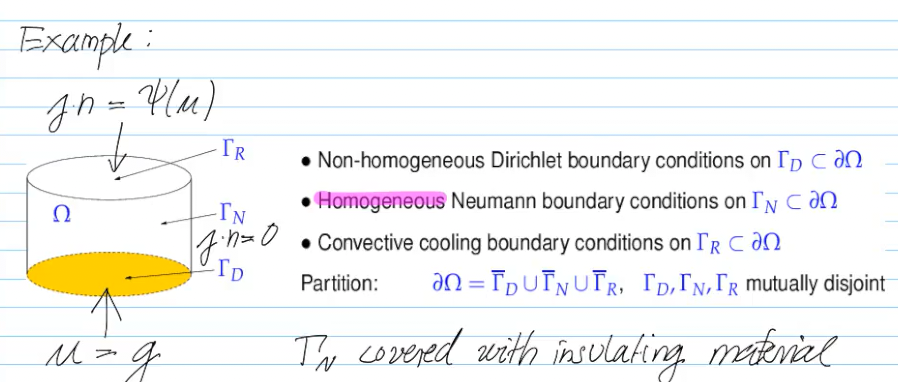 Example:
j·n = Ψ(u)
Γ_R
• Non-homogeneous Dirichlet boundary conditions on Γ_D ⊂ ∂Ω
Ω
• Homogeneous Neumann boundary conditions on Γ_N ⊂ ∂Ω
Γ_N
j·n=0
• Convective cooling boundary conditions on Γ_R ⊂ ∂Ω
Γ_D
Partition: ∂Ω = Γ̅_D ∪ Γ̅_N ∪ Γ̅_R, Γ_D, Γ_N, Γ_R mutually disjoint
u = g
Γ_N covered with insulating material